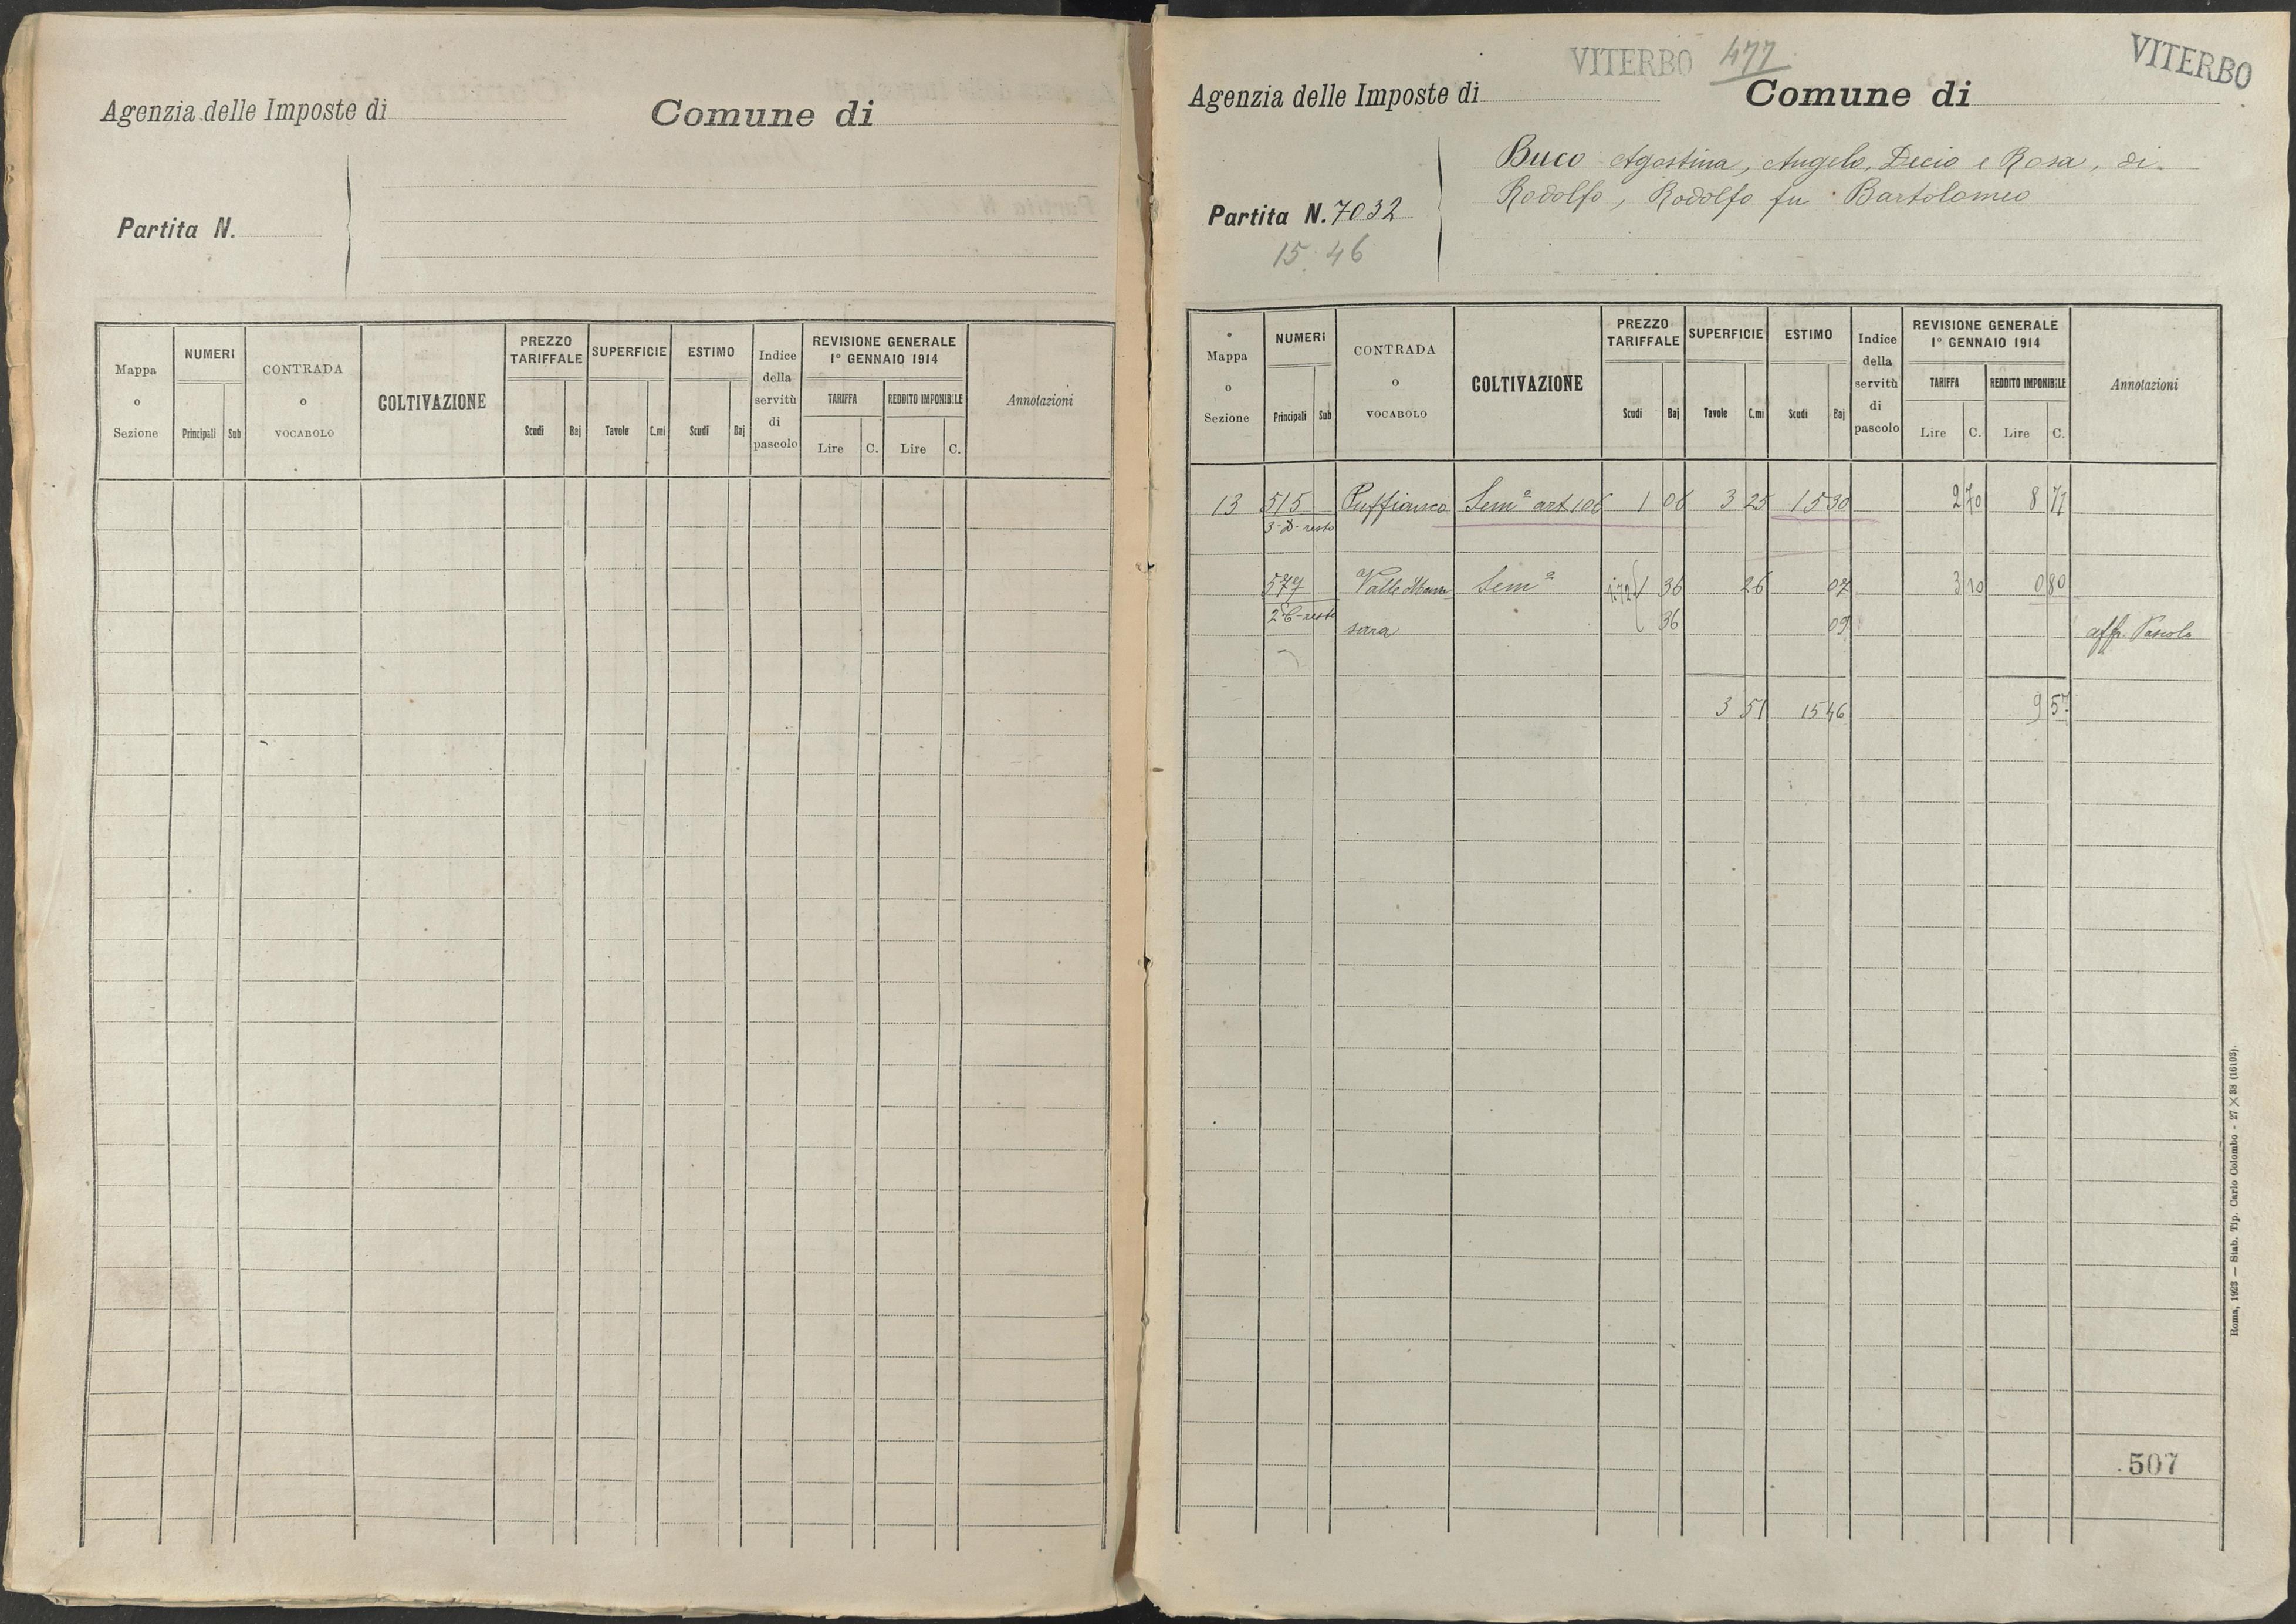 Agenzia delle Imposte di
Comune di
Partita N.
Mappa o Sezione
NUMERI
Principali
Sub
CONTRADA o VOCABOLO
COLTIVAZIONE
PREZZO TARIFFALE
Scudi
Baj
SUPERFICIE
Tavole
C.mi
ESTIMO
Scudi
Baj
Indice della servitù di pascolo
REVISIONE GENERALE
1° GENNAIO 1914
TARIFFA
Lire C.
REDDITO IMPONIBILE
Lire C.
Annotazioni
VITERBO 477
VITERBO
Agenzia delle Imposte di
Comune di
Buco Agostina, Angelo, Decio e Rosa, di
Rodolfo, Rodolfo fu Bartolomeo
Partita N. 7032
15.46
Mappa o Sezione
NUMERI
Principali
Sub
CONTRADA o VOCABOLO
COLTIVAZIONE
PREZZO TARIFFALE
Scudi
Baj
SUPERFICIE
Tavole
C.mi
ESTIMO
Scudi
Baj
Indice della servitù di pascolo
REVISIONE GENERALE
1° GENNAIO 1914
TARIFFA
Lire C.
REDDITO IMPONIBILE
Lire C.
Annotazioni
13 515 Semo art 106 1 06 3 25 15 30 2 70 8 77
resto
577 Valle Semo 36 26 07 3 10 0 80
resto sara 36 09 aff. Pascolo
3 51 15 46 9 57
507
Roma, 1923 — Stab. Tip. Carlo Colombo - 27 × 38 (16103).